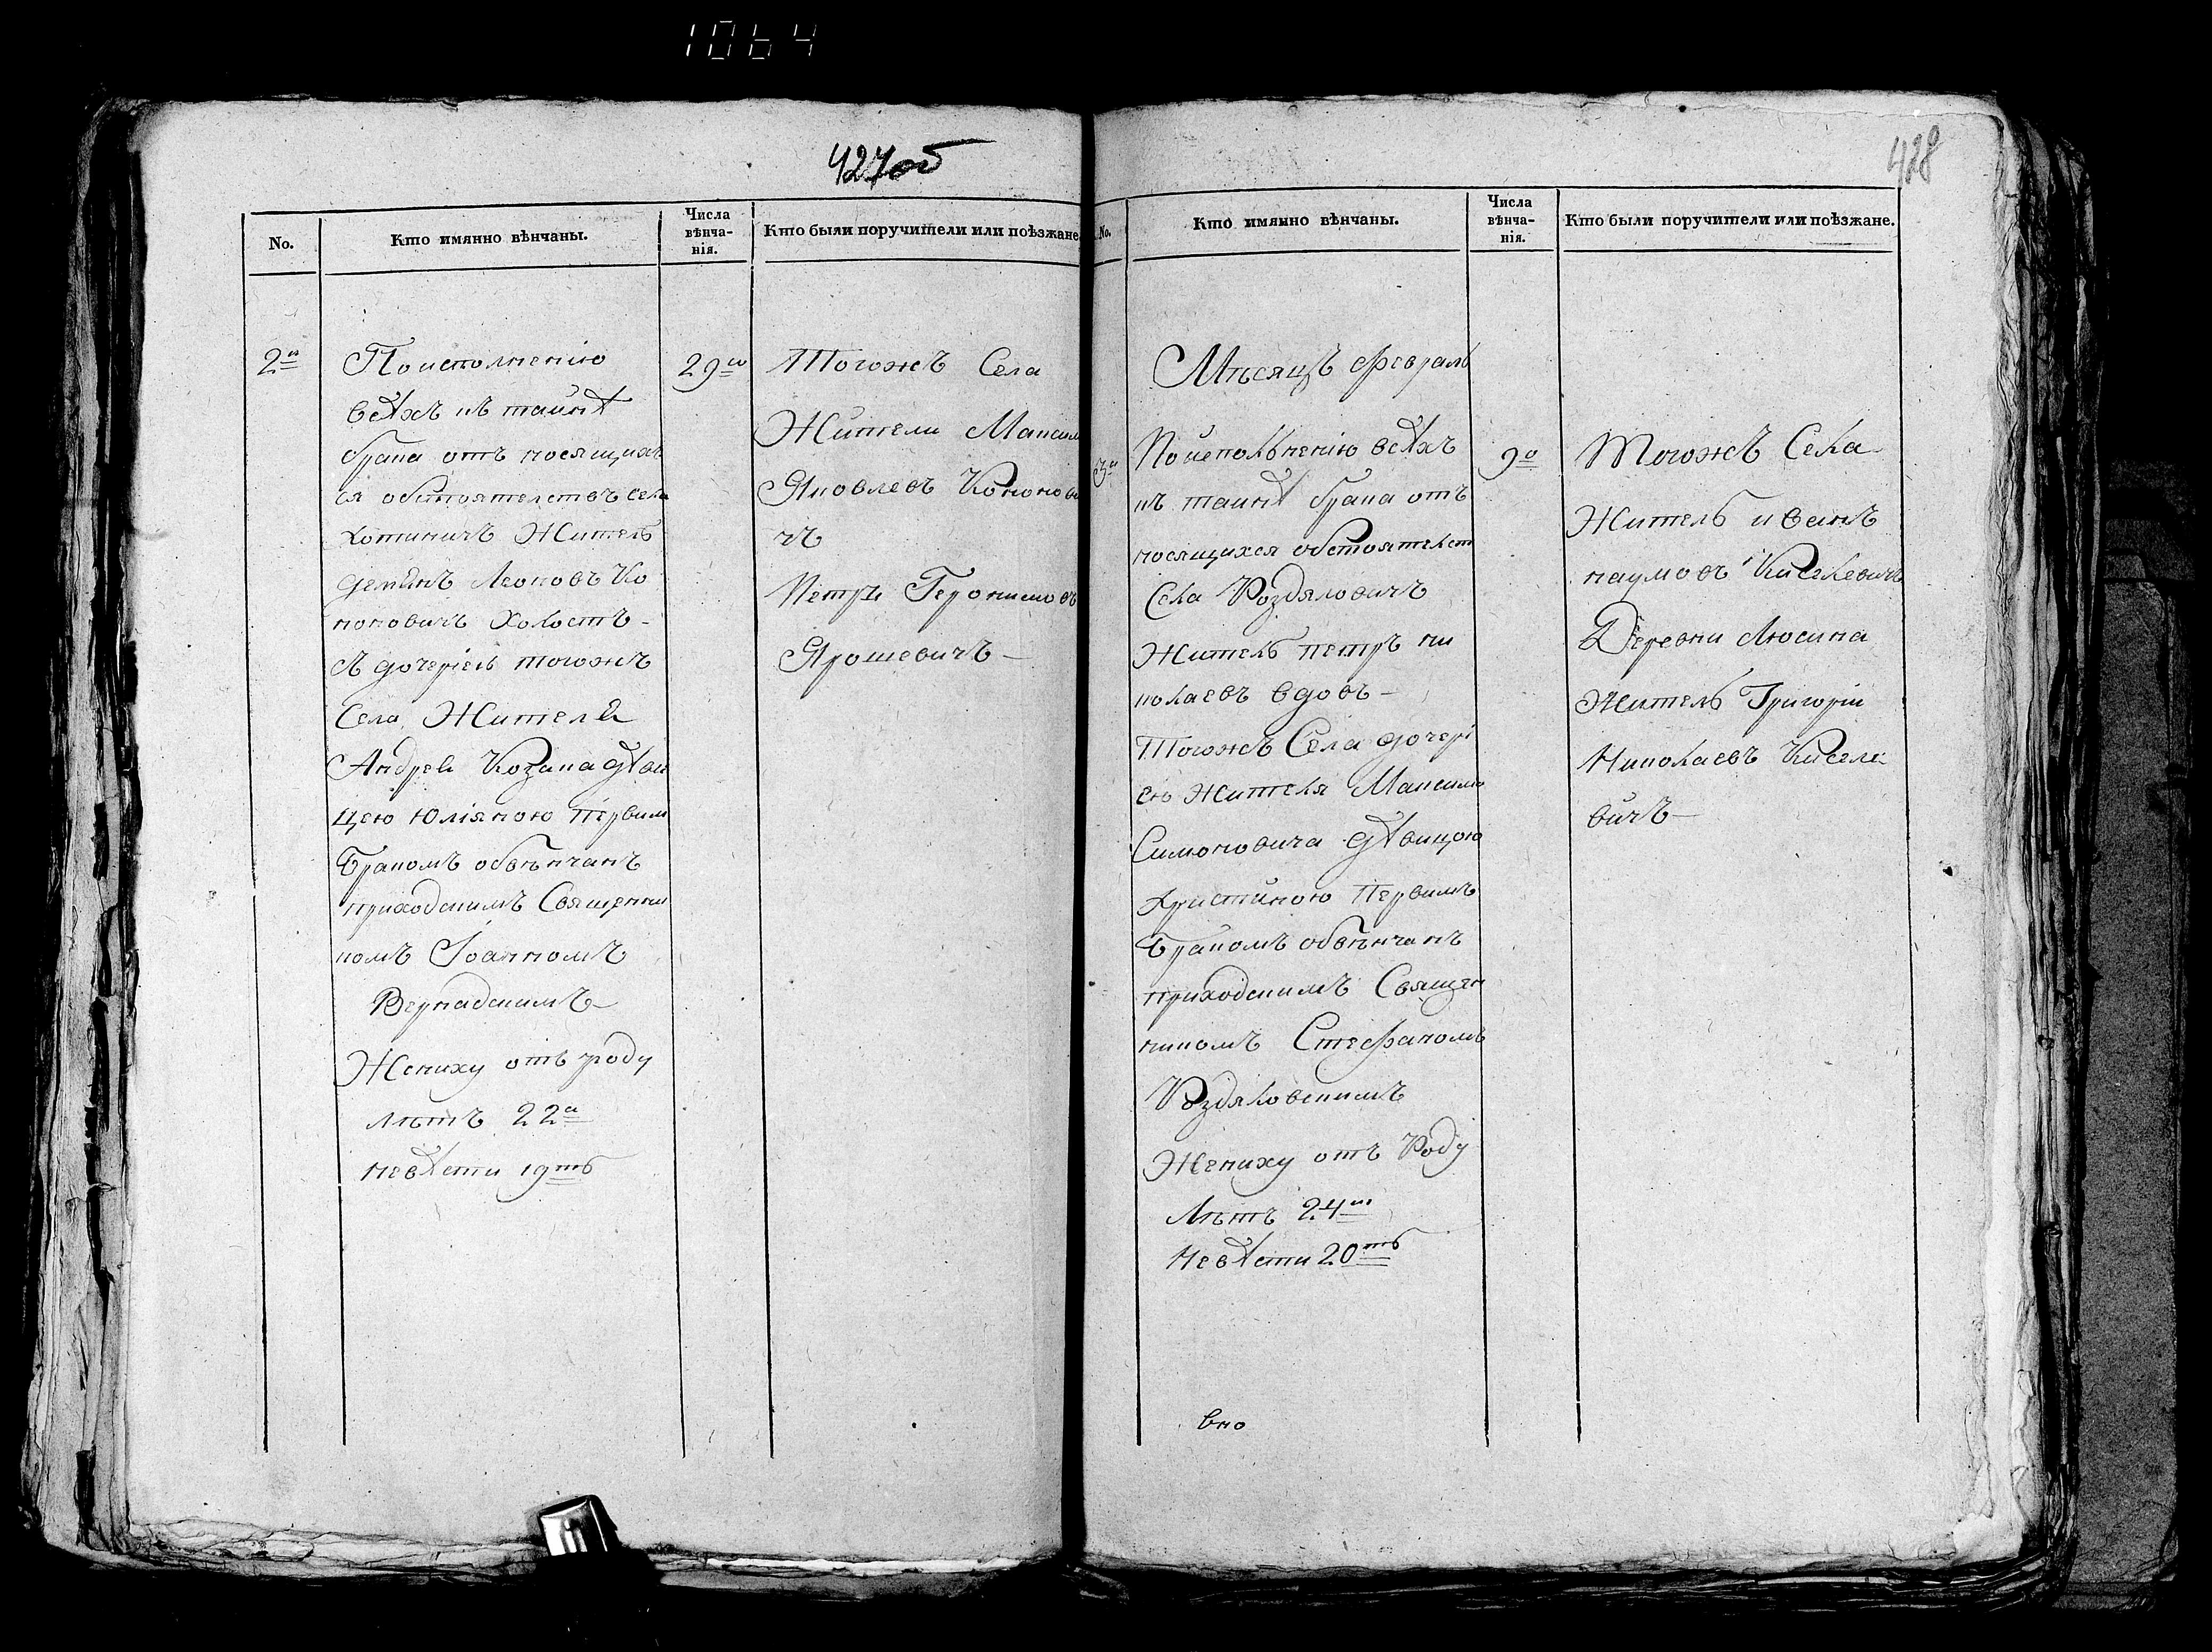 1064
427об
No.
Кто имянно вѣнчаны.
Числа
вѣнча-
нія.
Кто были поручители или поѣзжане
2й
По исполненію
всѣхъ къ тайнѣ
брака отъ носящих
ся обстоятелствъ села
хотиничъ Житель
Демянъ Леоновъ Ко
ноновичъ Холостъ -
Съ дочеріею тогожъ
Села Жителя
Андрея Козака дѣви
цею Юліяною Первим
Бракомъ обвѣнчанъ
приходскимъ Священни
комъ Іоанномъ
Вернадскимъ
Жениху отъ роду
лѣтъ 22а
невѣсти 19ть
29го
Тогожъ Села
Жители Максим
Яковлевъ Кононови
чъ
Петръ Геронимовъ
Ярошевичъ —
428
No.
Кто имянно вѣнчаны.
Числа
вѣнча-
нія.
Кто были поручители или поѣзжане.
Мѣсяцъ февраль
3й
По исполненію всѣхъ
къ тайнѣ брака отъ
носящихся обстоятелст
Села Роздяловичъ
Житель петръ ни
колаевъ вдовъ -
Тогожъ Села дочері
ею жителя Максима
Симоновича дѣвицою
Христиною Первимъ
Бракомъ обвѣнчанъ
приходскимъ Священ
никомъ Стефаномъ
Роздяловскимъ
Жениху отъ Роду
Лѣтъ 24ш
Невѣсти 20ть
9о
Тогожъ Села
Житель
наумовъ Киселевичъ
Деревни Люсина
Житель Григорій
Николаевъ Киселе
вичъ —
вно